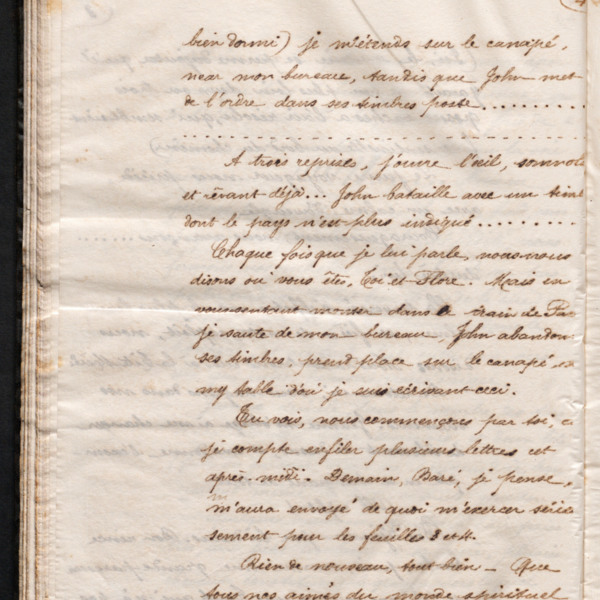 bien dormi) je m'étends sur le canapé,
near mon bureau, tandis que John met
de l'ordre dans ses timbres poste..........
A trois reprises, j'ouvre l'œil, somnole
et rêvant déjà... John bataille avec un
dont le pays n'est plus indiqué.........
Chaque fois que je lui parle, nous nous
disons où vous êtes, Toi et Flore. Mais en
vous sentant monter dans le train de
je saute de mon bureau, John abandon
ses timbres, prend place sur le canapé
my table d'où je suis écrivant ceci.
Tu vois, nous commençons par toi,
je compte enfiler plusieurs lettres cet
après-midi. Demain, Baré, je pense,
m'aura envoyé de quoi m'exercer série
sement pour les feuilles 3 et 4.
Rien de nouveau, tout bien - Que
tous nos aimés du monde spirituel